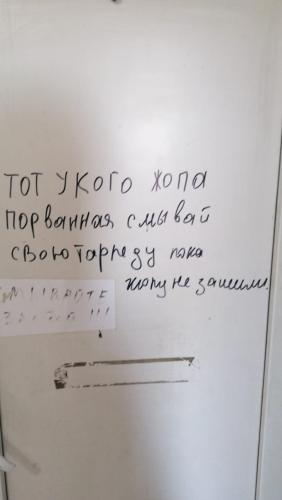 ТОТ УКОГО ЖОПА
ПОРВАННАЯ СМЫВАЙ
СВОЮ ТАРПЕДУ ПОКА
ЖОПУ НЕ ЗАШИЛИ.